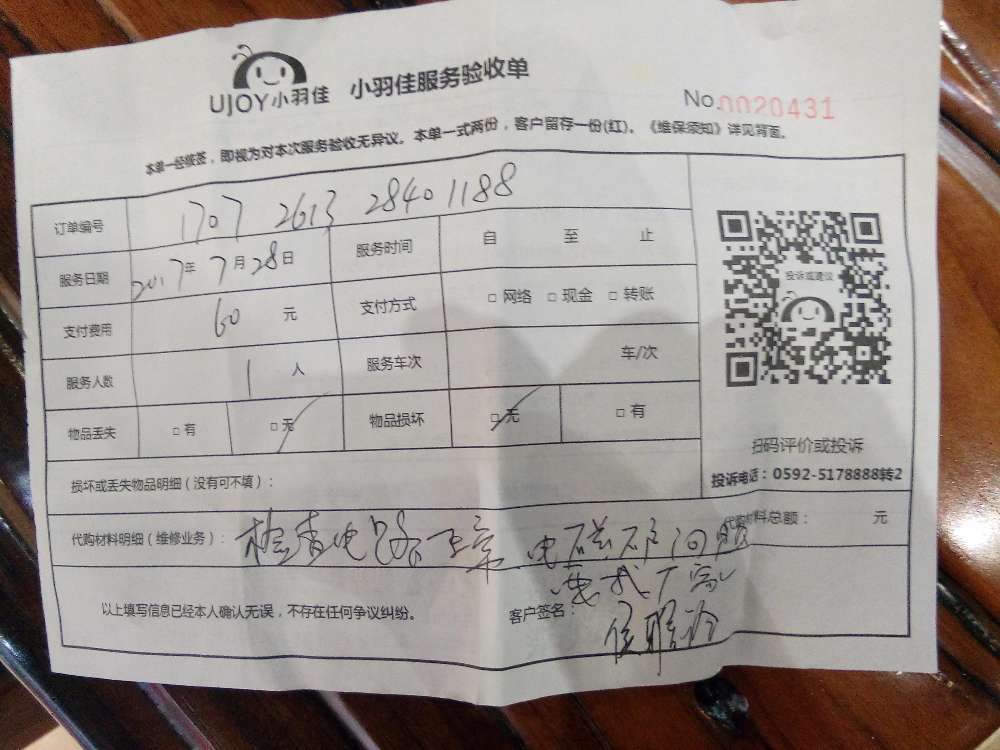 UJOY小羽佳 小羽佳服务验收单
No.0020431
本单一经签, 即视为对本次服务验收无异议。本单一式两份, 客户留存一份(红)。《维保须知》详见背面。
订单编号 1707 2613 2840 1188
服务日期 2017年 7月28日 服务时间 自 至 止
支付费用 60 元 支付方式 □ 网络 □ 现金 □ 转账
服务人数 1 人 服务车次 车/次
物品丢失 □ 有 □ 无 物品损坏 □ 无 □ 有
投诉或建议
扫码评价或投诉
投诉电话: 0592-5178888转2
损坏或丢失物品明细 ( 没有可不填 ) :
代购材料明细 ( 维修业务 ) : 检查电路正常 电磁 问题
代购材料总额: 元
以上填写信息已经本人确认无误, 不存在任何争议纠纷。 客户签名: